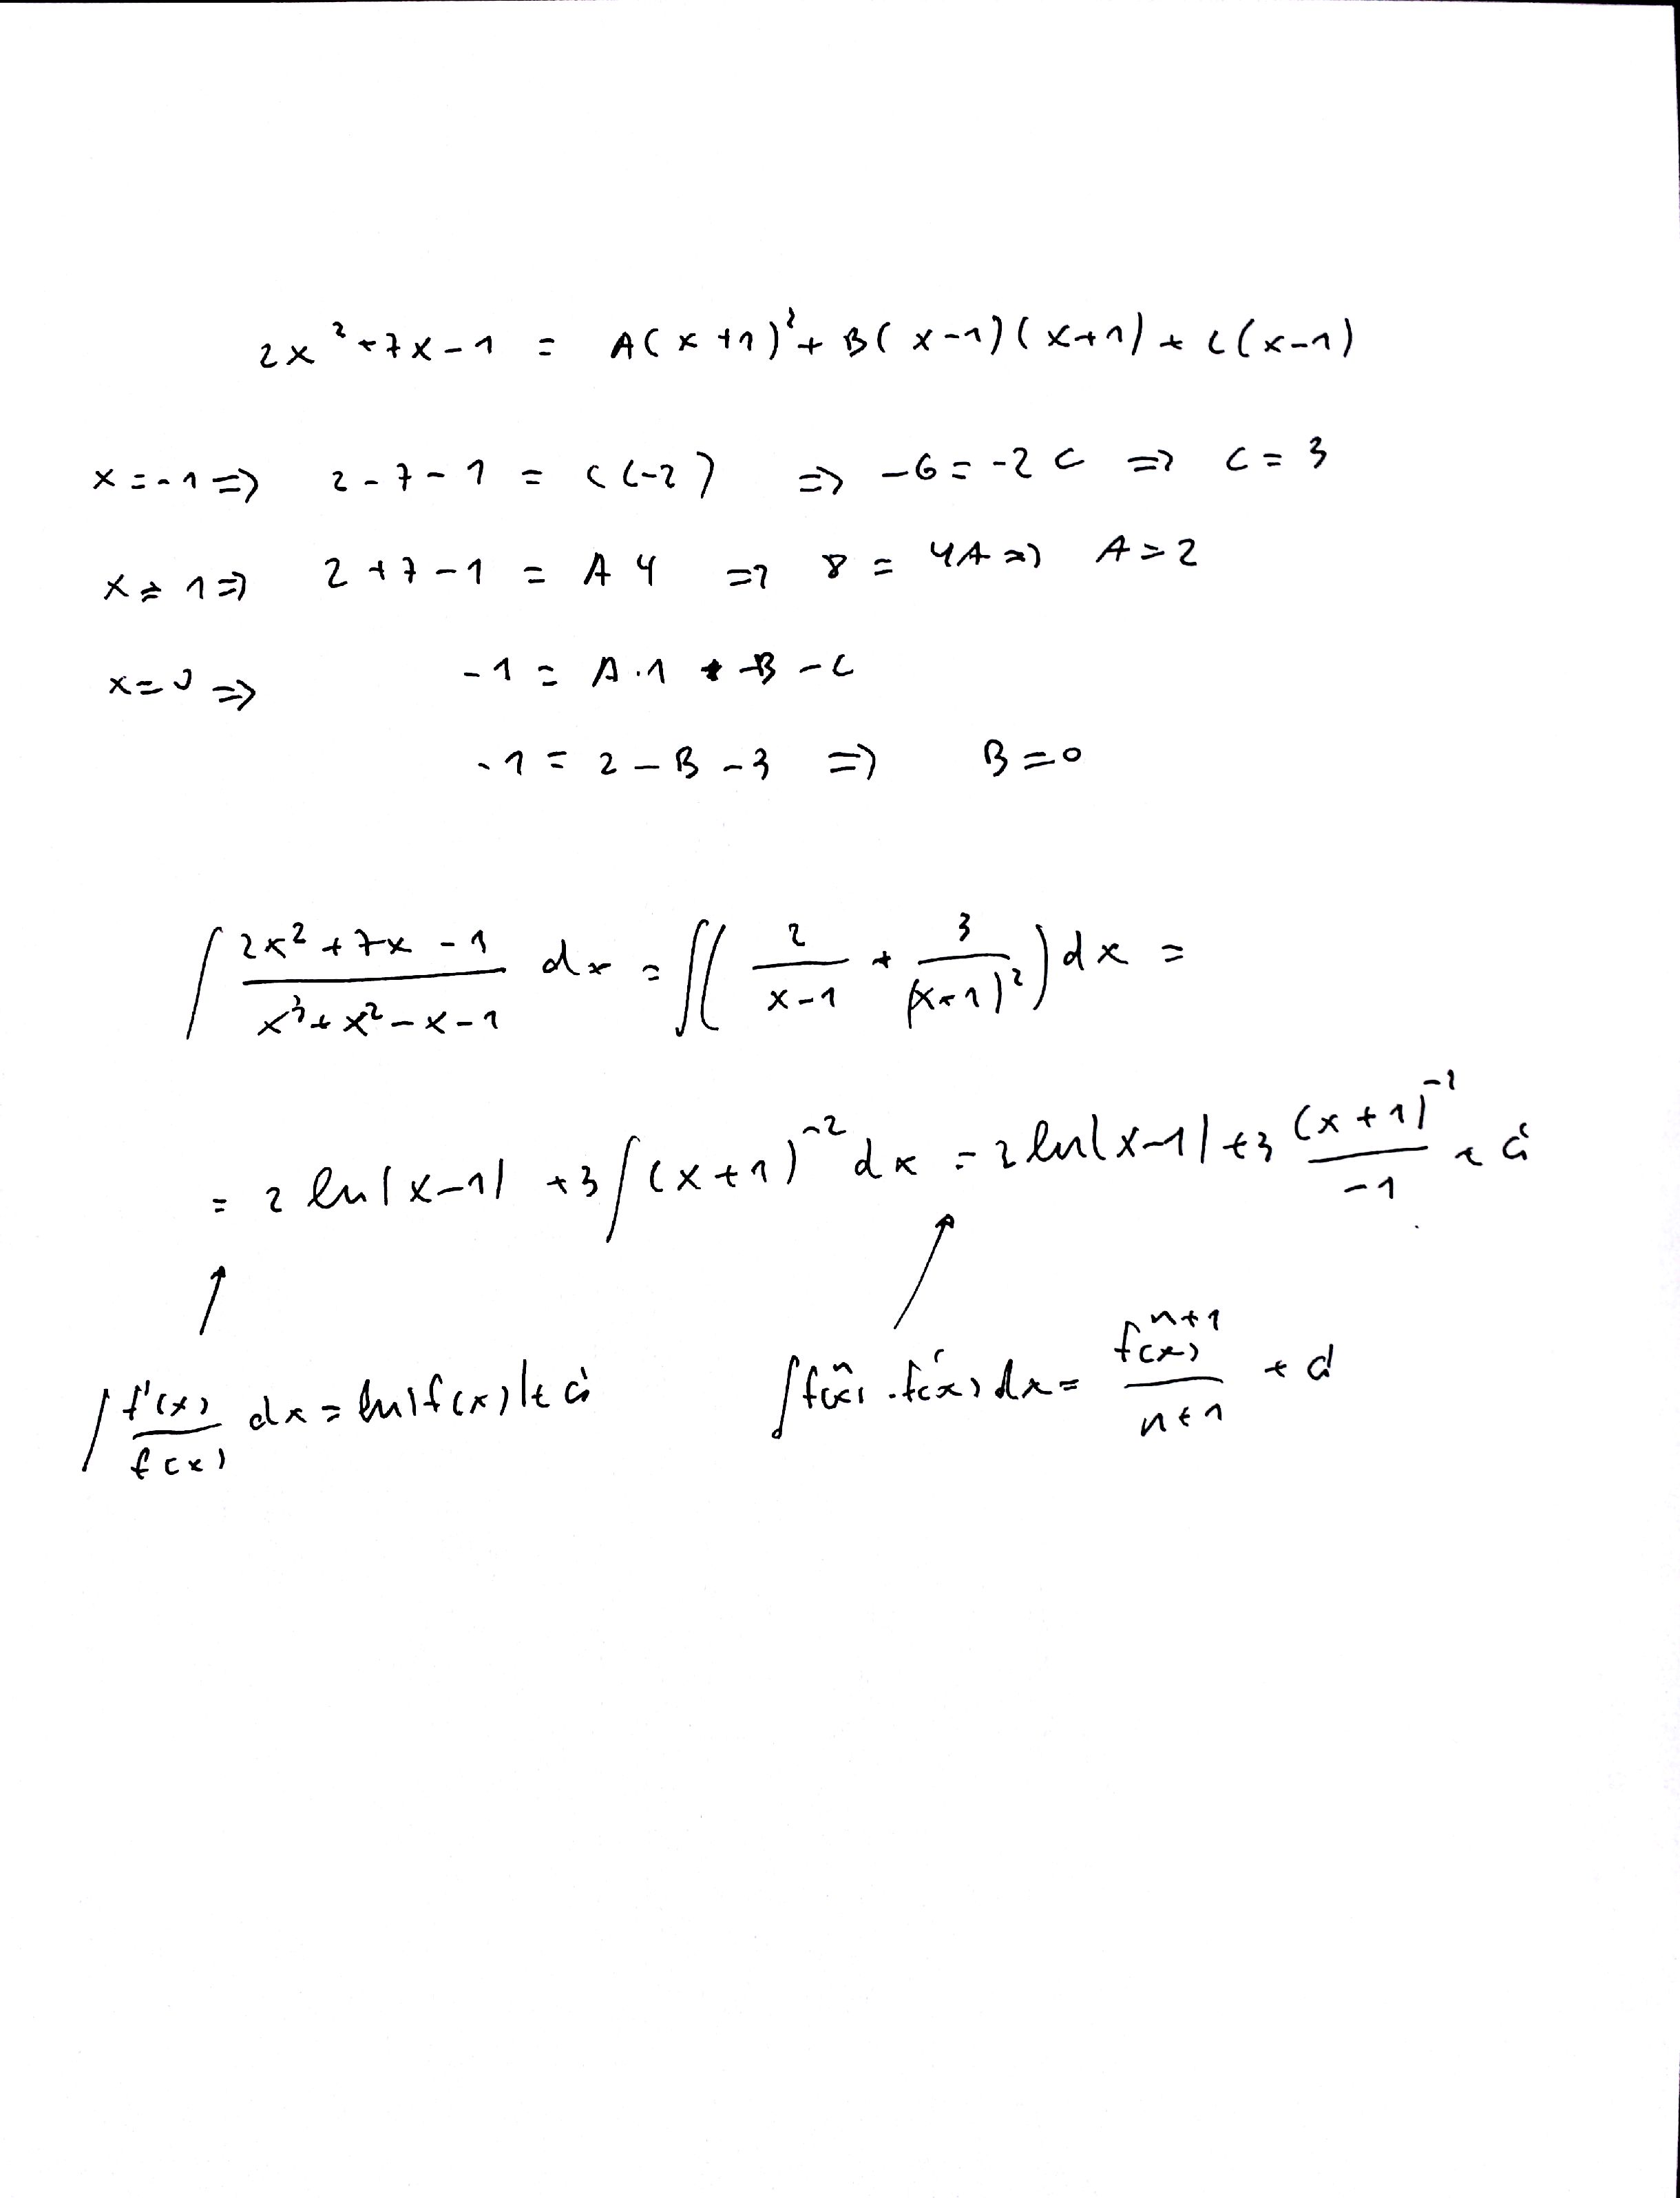 2x² + 7x - 1 = A(x + 1)² + B(x - 1)(x + 1) + C(x - 1)
x = -1 => 2 - 7 - 1 = C(-2) => -6 = -2C => C = 3
x = 1 => 2 + 7 - 1 = A4 => 8 = 4A => A = 2
x = 0 => -1 = A·1 - B - C
-1 = 2 - B - 3 => B = 0
∫ (2x² + 7x - 1)/(x³ + x² - x - 1) dx = ∫ (2/(x - 1) + 3/(x + 1)²) dx =
= 2 ln|x - 1| + 3 ∫ (x + 1)⁻² dx = 2 ln|x - 1| + 3 (x + 1)⁻¹/-1 + C
∫ f'(x)/f(x) dx = ln|f(x)| + C ∫ fⁿ(x) · f'(x) dx = fⁿ⁺¹(x)/(n + 1) + C